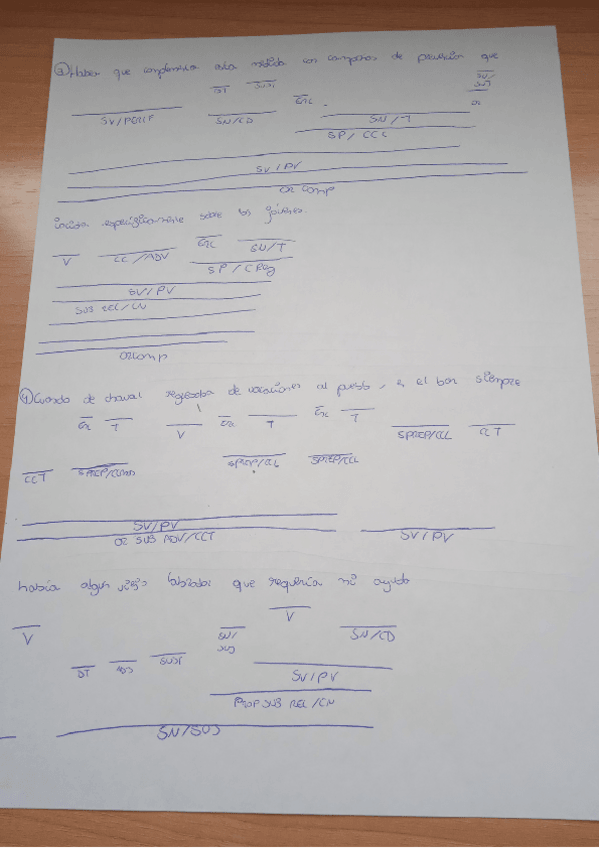 ③ Haber que complementar esta medida con campañas de prevención que
DT SUST SN/SUJ
Enc
SV/PERIF SN/CD SN/T
SP/CCC
SV/PV
OR COMP
incidan específicamente sobre los jóvenes.
V CC/ADV Enc SN/T
SP/CReg
SV/PV
SUB REL/CN
OR COMP
④ Cuando de chaval regresaba de vacaciones al pueblo, en el bar siempre
Enc T V Enc T Enc T SPREP/CCL CCT
CCT SPREP/ SPREP/CCL SPREP/CCL
SV/PV SV/PV
OR SUB ADV/CCT
había algun viejo labrador que requería mi ayuda
V
V SN/SUJ SN/CD
DT ADJ SUST SV/PV
PROP SUB REL/CN
SN/SUJ